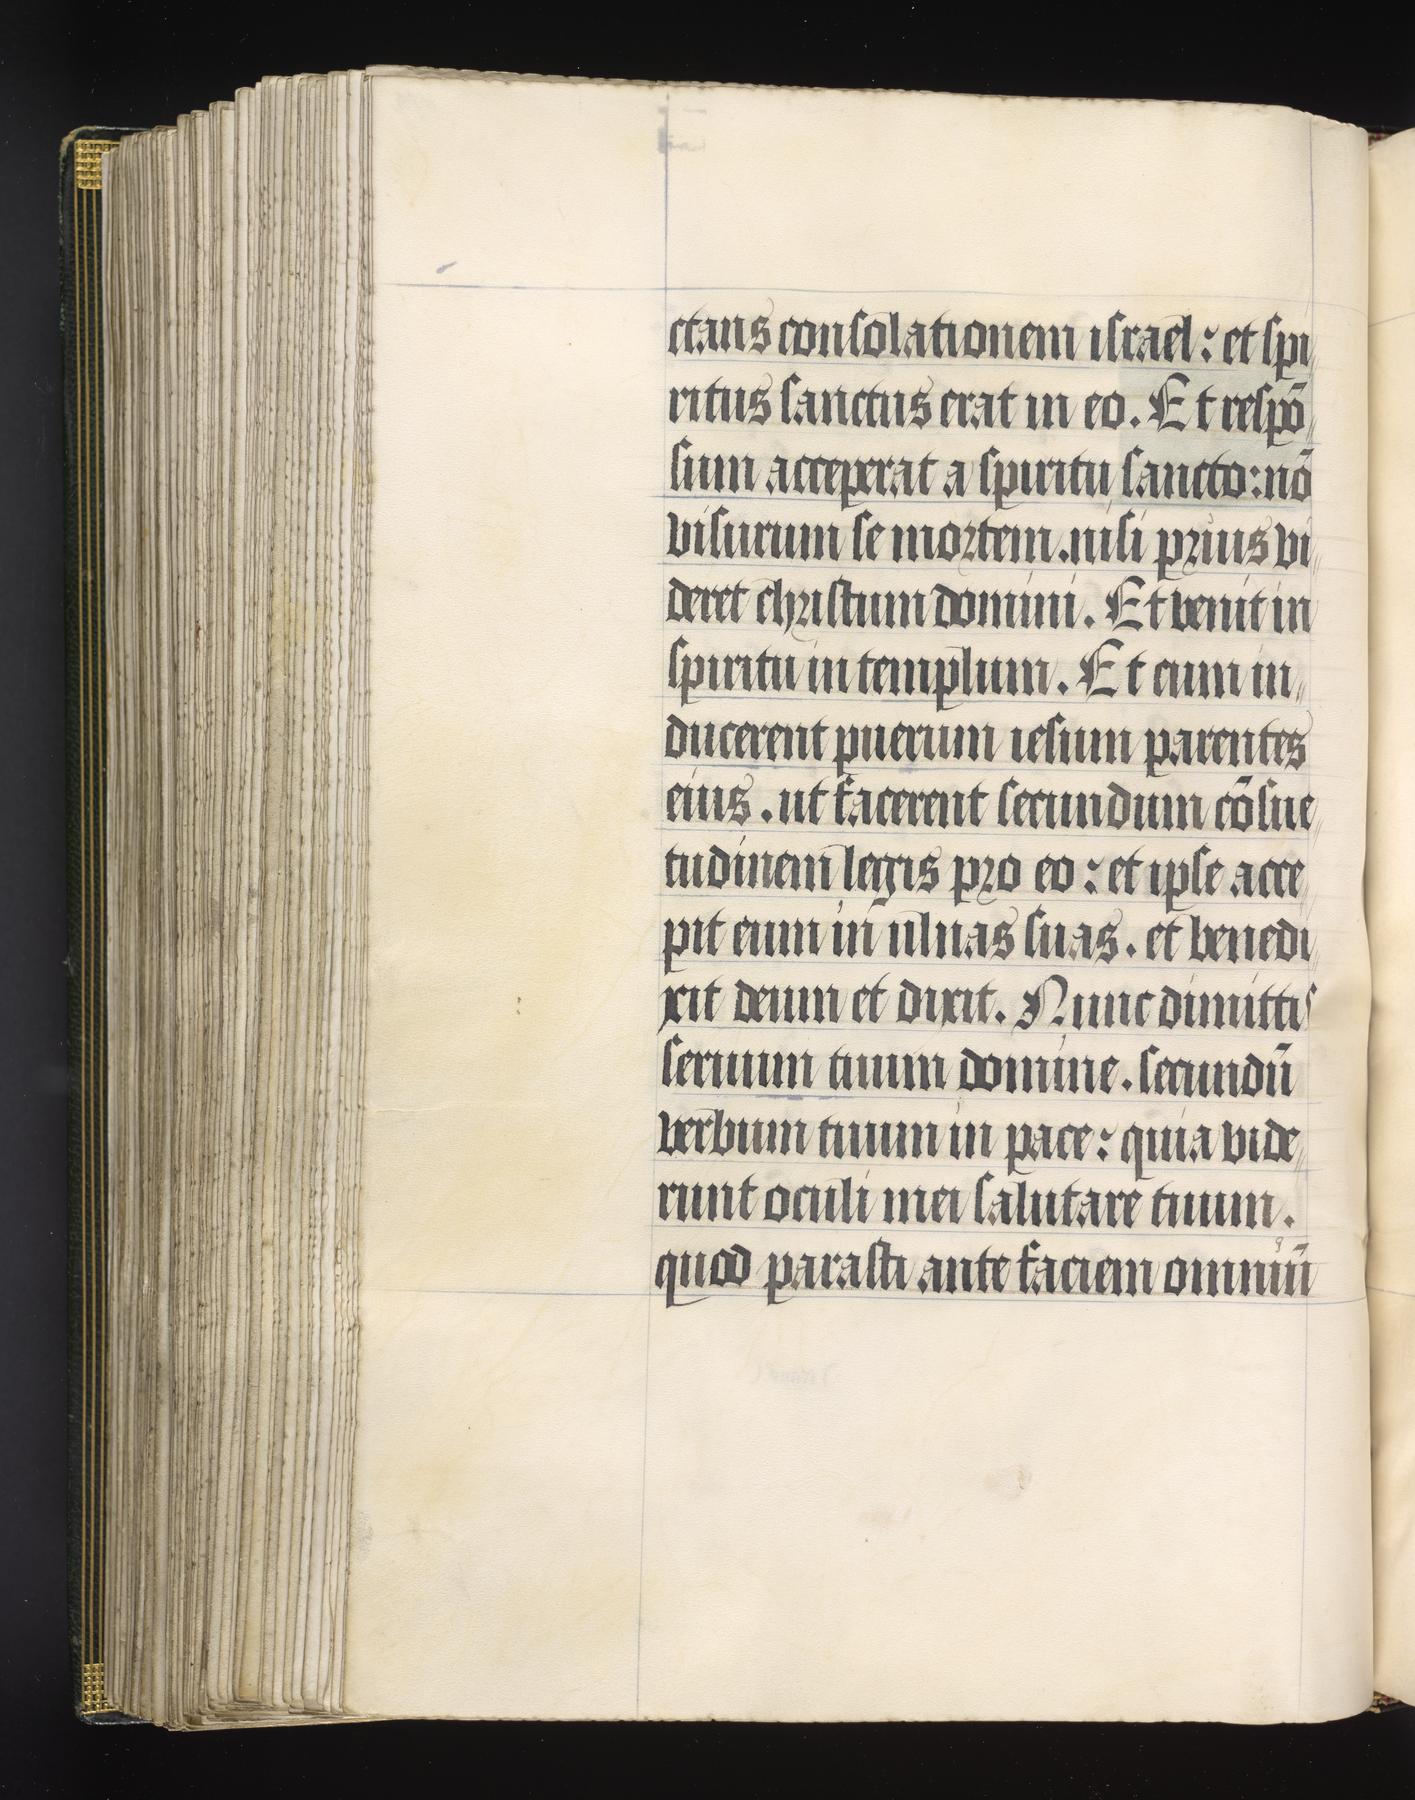 ctans consolationem israel: et spi
ritus sanctus erat in eo. Et respō
sum acceperat a spiritu sancto: nō
visurum se mortem. nisi prius vi
deret christum domini. Et venit in
spiritu in templum. Et cum in
ducerent puerum iesum parentes
eius. ut facerent secundum cōsue
tudinem legis pro eo: et ipse acce
pit eum in ulnas suas. et benedi
xit deum et dixit. Nunc dimittis
seruum tuum domine. secundū
verbum tuum in pace: quia vide
runt oculi mei salutare tuum.
quod parasti ante faciem omniū